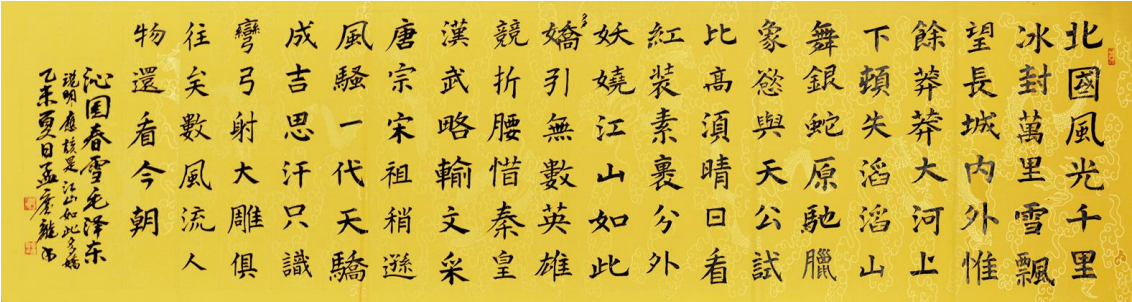 北國風光千里
冰封萬里雪飄
望長城内外惟
餘莽莽大河上
下頓失滔滔山
舞銀蛇原馳臘
象慾與天公試
比高湏晴日看
紅装素裹分外
妖嬈江山如此
多嬌引無數英雄
競折腰惜秦皇
漢武略輸文采
唐宗宋祖稍遜
風騷一代天驕
成吉思汗只識
彎弓射大雕俱
往矣數風流人
物還看今朝
沁园春雪毛泽东
説明應該是江山如此多嬌
乙未夏日孟庆龍书